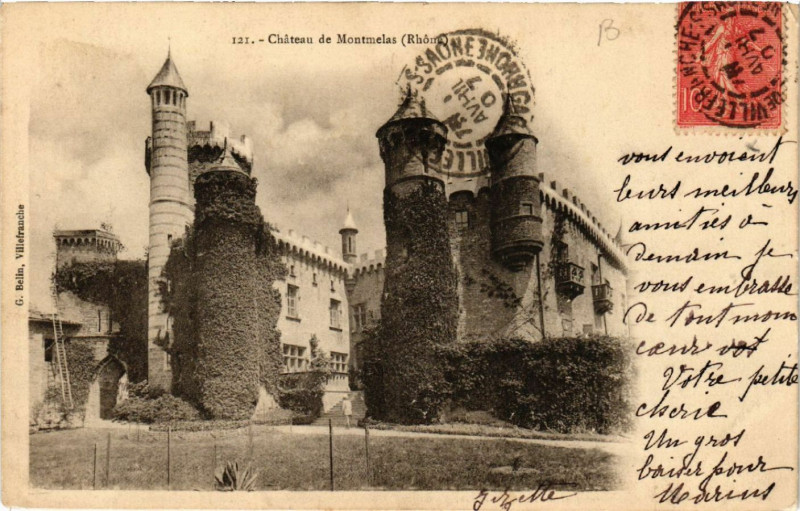 121. - Château de Montmelas (Rhône)
B
10
VILLEFRANCHE-S-SAONE
AVRIL
07
G. Belin, Villefranche
vous envoient
leurs meilleurs
amitiés à
demain je
vous embrasse
de tout mon
cœur
Votre petite
cherie
Un gros
baiser pour
Marius